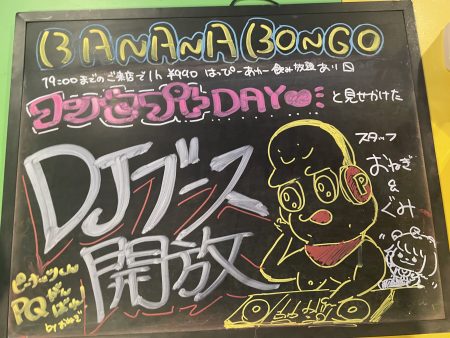 BANANA BONGO
19:00までのご来店で1h ¥990 はっぴーあわー飲み放題あり〼
コンセプトDAY
と見せかけた
DJブース
開放
スタッフ
おねぎ
&
ぐみ
P
ピーナッツくん
PQ
がんばれ!
by おねぎ